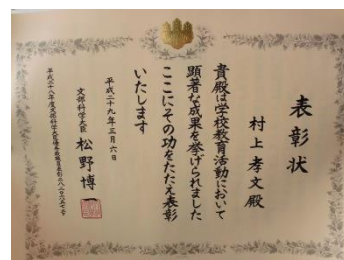 表彰状
村上孝文殿
貴殿は学校教育活動において
顕著な成果を挙げられました
ここにその功をたたえ表彰
いたします
平成二十九年三月六日
文部科学大臣 松野博一